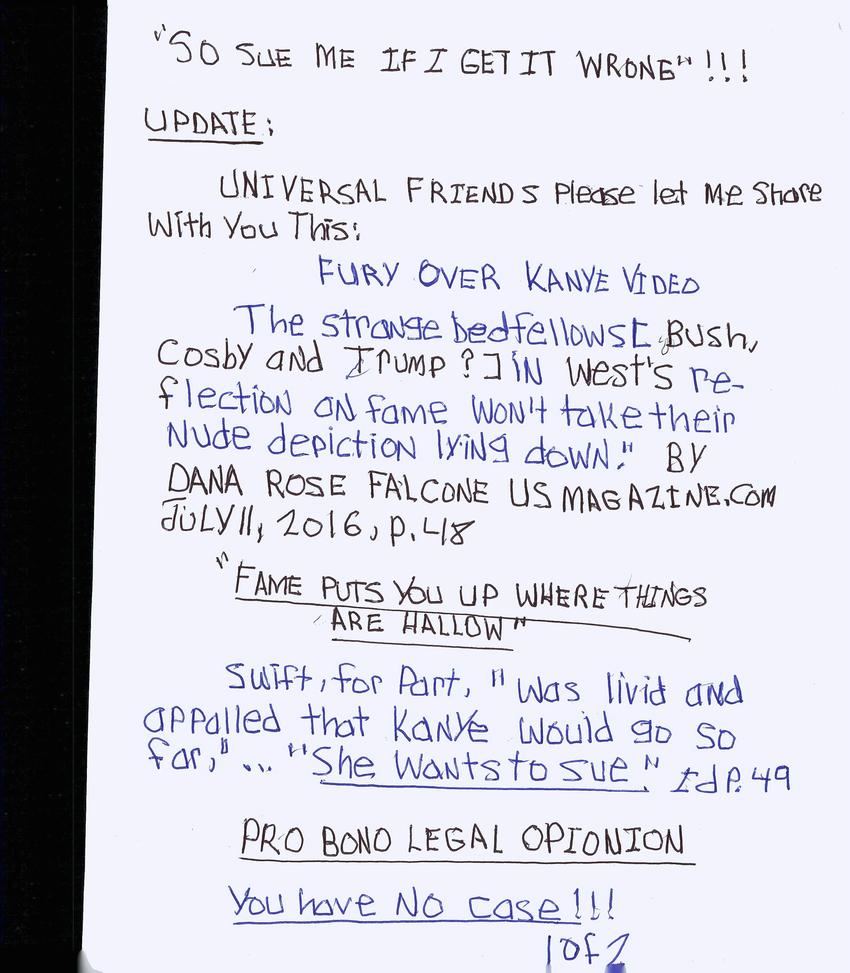 "SO SUE ME IF I GET IT WRONG"!!!
UPDATE:
UNIVERSAL FRIENDS Please let Me Share
With You This:
FURY OVER KANYE VIDEO
The strange bedfellows[ Bush,
Cosby and Trump?] in West's re-
flection on fame won't take their
Nude depiction lying down." BY
DANA ROSE FALCONE US MAGAZINE.COM
JULY 11, 2016, p.48
"FAME PUTS YOU UP WHERE THINGS
ARE HALLOW"
Swift, for Part, "was livid and
appalled that Kanye would go so
far,"... "She Wants to sue" Id P.49
PRO BONO LEGAL OPIONION
You have No case!!!
1 of 2